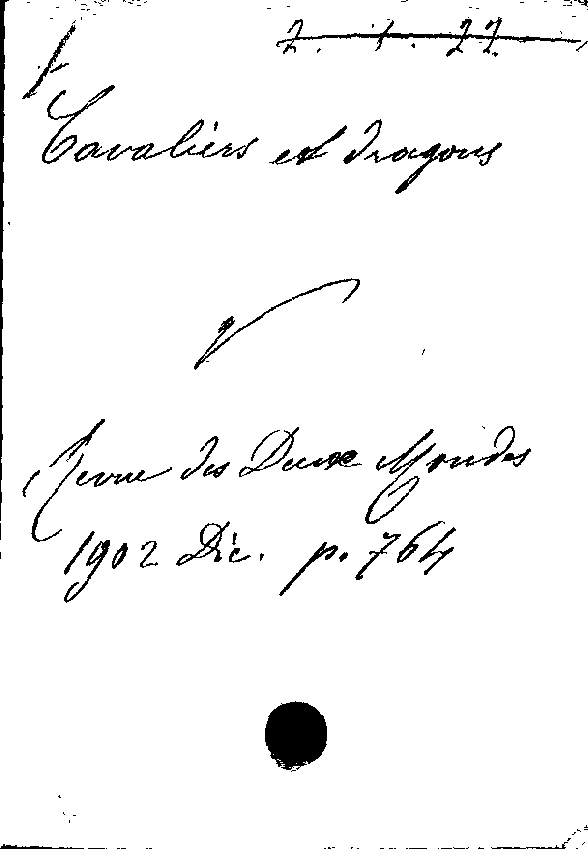 2. 1. 22
Cavaliers et dragons
Revue des Deux Mondes
1902 Déc. p. 764